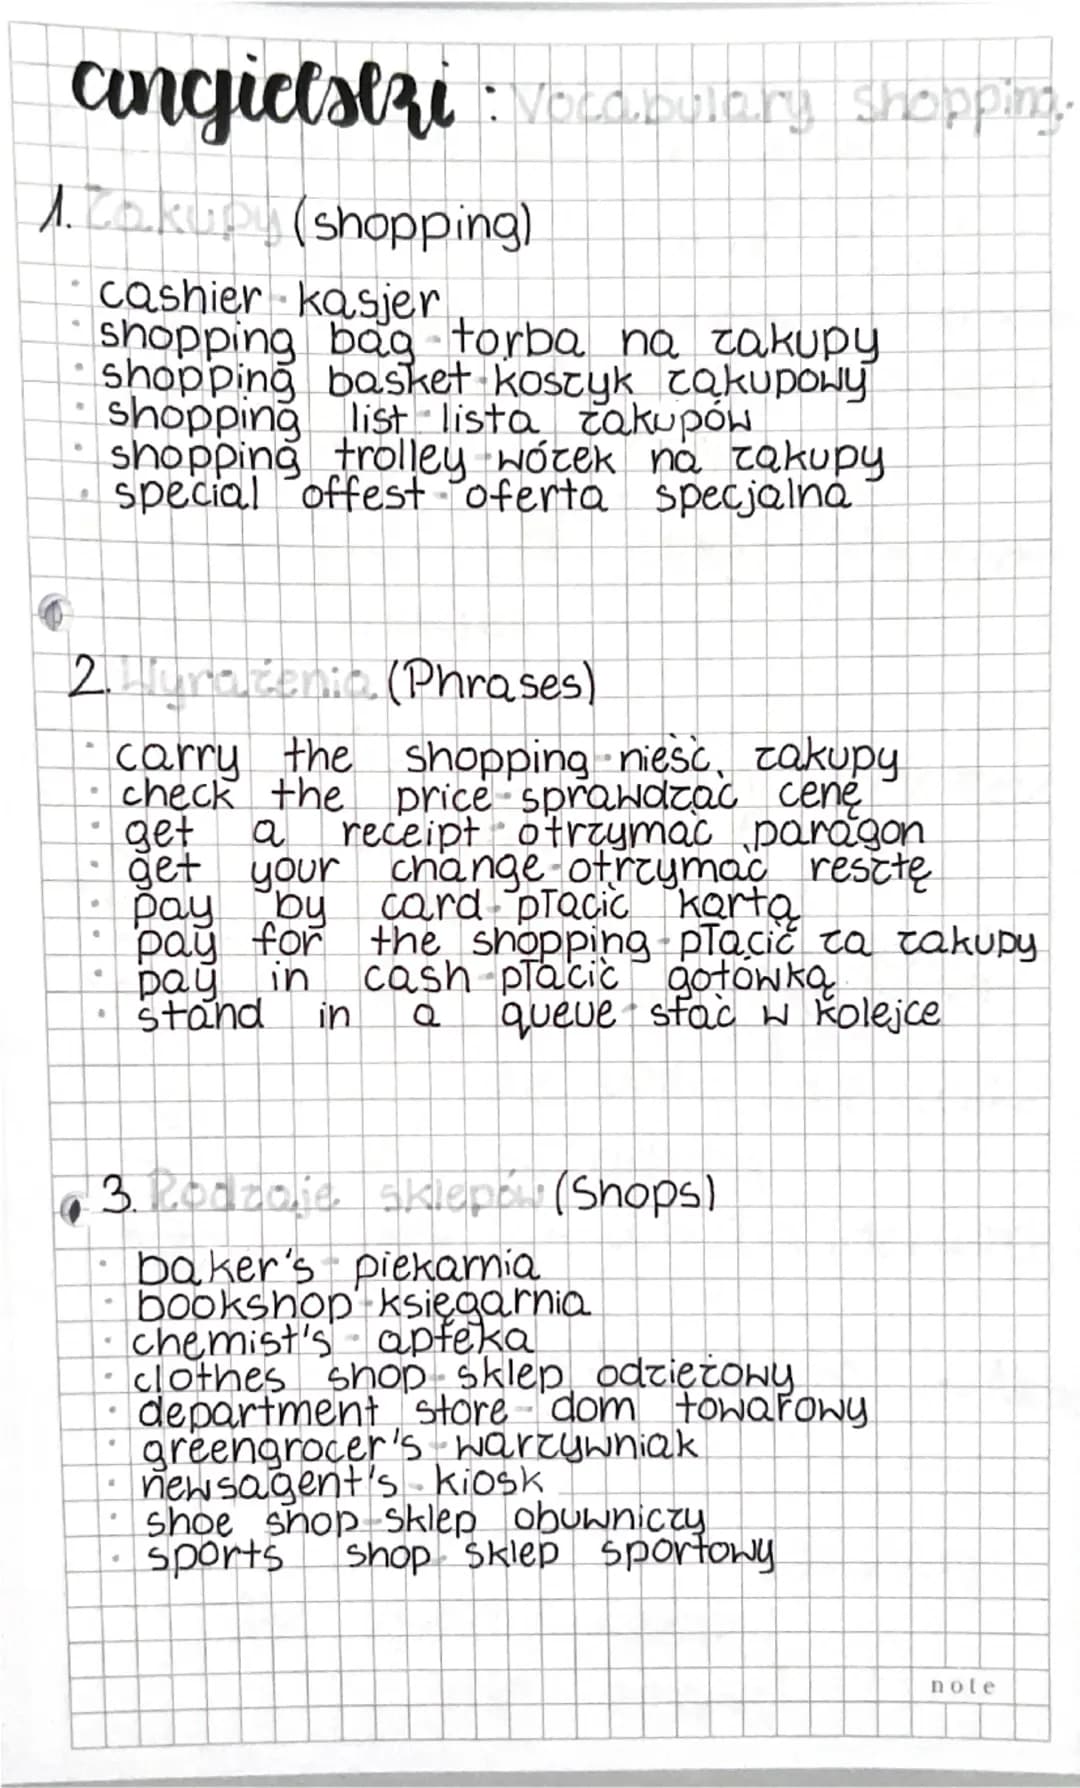 angielski: Vocabulary Shopping.
1. Zakupy (shopping)
· cashier - kasjer
· shopping bag - torba na zakupy
· shopping basket - koszyk zakupowy
· shopping list - lista zakupów
· shopping trolley - wózek na zakupy
· special offest - oferta specjalna
2. Wyrażenia (Phrases)
· carry the shopping - nieść zakupy
· check the price - sprawdzać cenę
· get a receipt - otrzymać paragon
· get your change - otrzymać resztę
· pay by card - płacić kartą
· pay for the shopping - płacić za zakupy
· pay in cash - płacić gotówką
· stand in a queue - stać w kolejce
3. Rodzaje sklepów (Shops)
· baker's - piekarnia
· bookshop - księgarnia
· chemist's - apteka
· clothes shop - sklep odzieżowy
· department store - dom towarowy
· greengrocer's - warzywniak
· newsagent's - kiosk
· shoe shop - sklep obuwniczy
· sports shop - sklep sportowy
note